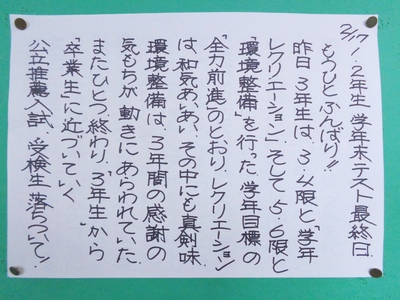 2/17 1.2年生 学年末テスト最終日.
もうひとふんばり!!
昨日 3年生は、3.4限と「学年
レクリエーション」、そして5.6限と
「環境整備」を行った. 学年目標の
「全力前進」のとおり、レクリエーション
は、和気あいあい、その中にも真剣味.
環境整備は、3年間の感謝の
気もちが動きにあらわれていた.
またひとつ終わり、「3年生」から
「卒業生」に近づいていく.
公立推薦入試. 受検生落ちついて!